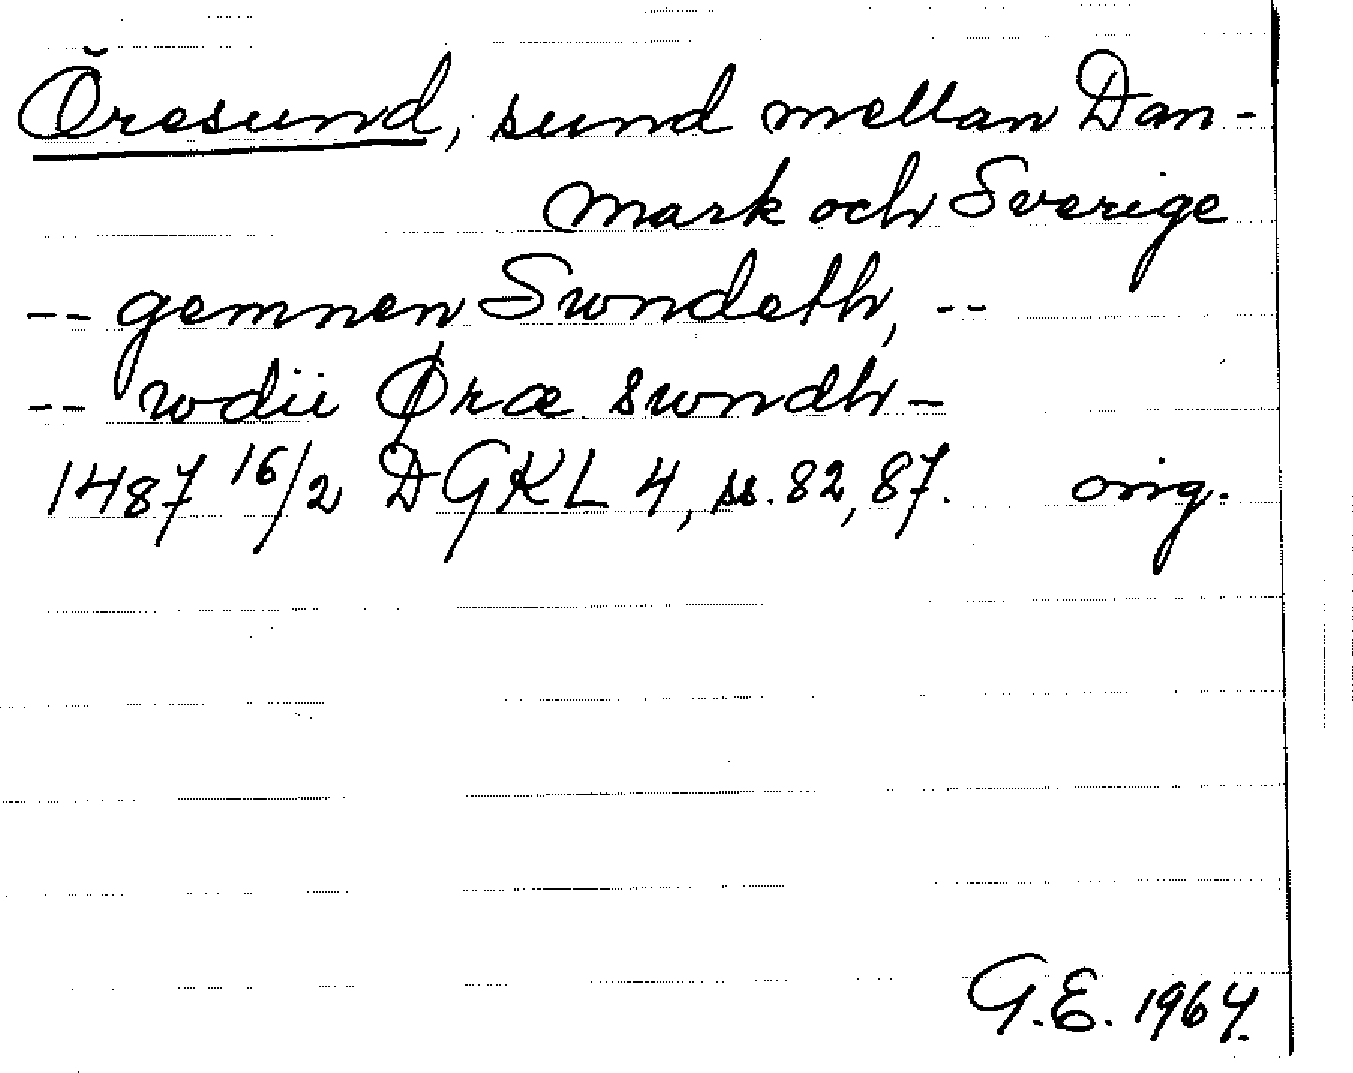 Öresund, sund mellan Dan-
mark och Sverige
-- gemnen Swndeth, --
-- wdii Øræ swndh -
1487 16/2 DGKL 4, ss. 82, 87. orig.
G.E. 1964.